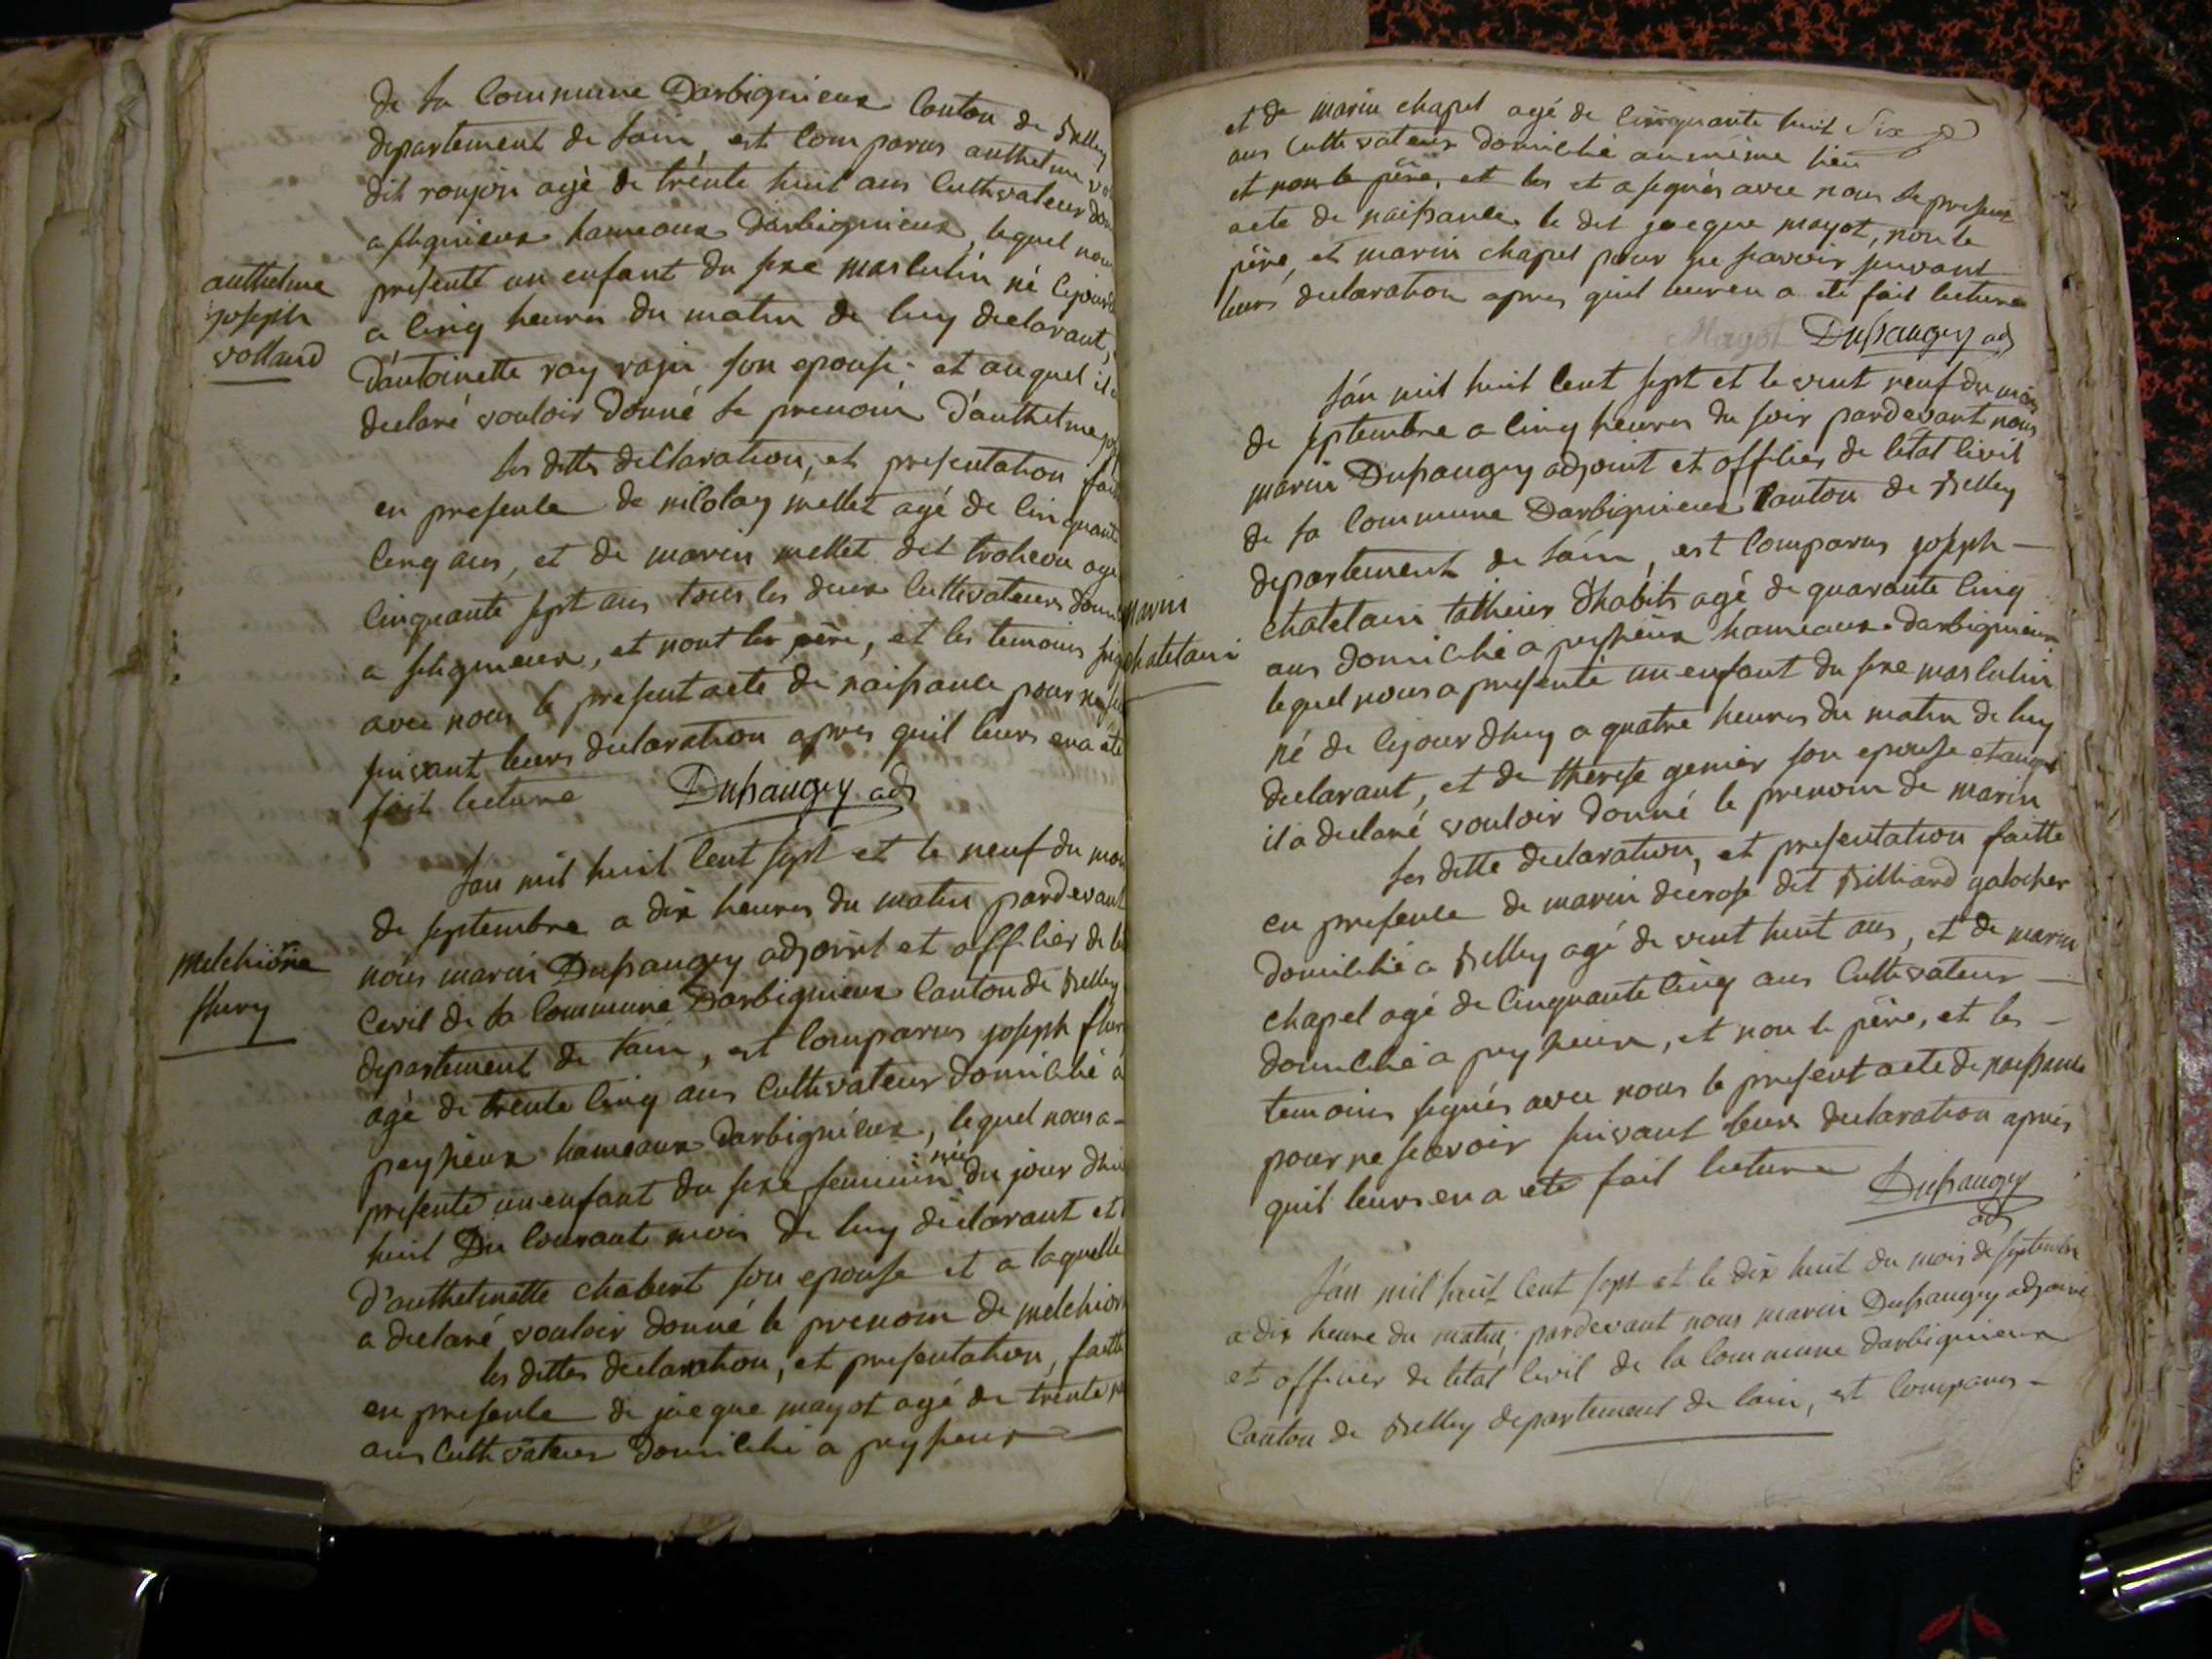 de la Commune Darbignieux Canton de Belley
departement de lain, est Comparus anthelme
dit roujon agé de trente huit ans Cultivateur
a hameaux Darbignieux, lequel nous
presenté un enfant du sexe masculin né cejourd
a cinq heures du matin de luy declarant,
D'antoinette ray son epouse et auquel il
declaré vouloir donné le prenom D'anthelme
anthelme
joseph
volland
les dittes declaration, et presentation
en presence de nicolas mellet agé de cinquante
cinq ans, et de marin mellet dit agé
cinquante sept ans tous les deux Cultivateurs
a, et nont les père, et les temoins
avec nous le present acte de naissance pour
suivant leurs declaration apres quil leurs en a été
fait lecture Dupaugey adj
lan mil huit Cent sept et le neuf du mois
de septembre a dix heures du matin pardevant
nous marin Dupaugey adjoint et officier de
Civil de la Commune Darbignieux Canton de Belley
departement de lain, est Comparus joseph
agé de trente cinq ans Cultivateur domicilié a
peyzieux hameaux Darbignieux, lequel nous a
presenté un enfant du sexe feminin née du jour dhui
huit Du Courant mois de luy declarant et
D'anthelmette chabert son epouse et a laquelle
a declaré vouloir donné le prenom de melchior
les dittes declaration, et presentation, faitte
en presence de jacque mayot agé de trente
ans Cultivateur domicilié a peyzieux
melchiorre
flury
et de marin chapel agé de cinquante huit Six
ans Cultivateur domicilié au même lieu
et non le père, et les et a signés avec nous le present
acte de naissance le dit jacque mayot, non le
père, et marin chapel pour ne scavoir suivant
leurs declaration apres quil leur en a été fait lecture
Mayot Dupaugey adj
lán mil huit Cent sept et le vint neuf du mois
de septembre a cinq heures du soir pardevant nous
marin Dupaugey adjoint et officier de létat Civil
de la Commune Darbignieux Canton de Belley
departement de láin, est Comparus joseph
chatelain tallieur dhabits agé de quarante cinq
ans domicilié a peyzieux hameaux Darbignieux
lequel nous a presenté un enfant du sexe masculin
né de cejourdhuy a quatre heures du matin de luy
declarant, et de therese genier son epouse et auquel
il a declaré vouloir donné le prenom de marin
les ditte declaration, et presentation faitte
en presence de marin decrose dit Billiard galocher
domicilié a Belley agé de vint huit ans, et de marin
chapel agé de cinquante cinq ans Cultivateur
domicilié a peyzieux, et non le père, et les
temoins signés avec nous le present acte de naissance
pour ne scavoir suivant leurs declaration apres
quil leurs en a été fait lecture
Dupaugey
adj
marin
chatelain
lán mil huit Cent sept et le dix huit du mois de septembre
a dix heure du matin, pardevant nous marin Dupaugey adjoint
et officier de létat Civil de la Commune darbignieux
Canton de Belley departement de lain, est Comparus